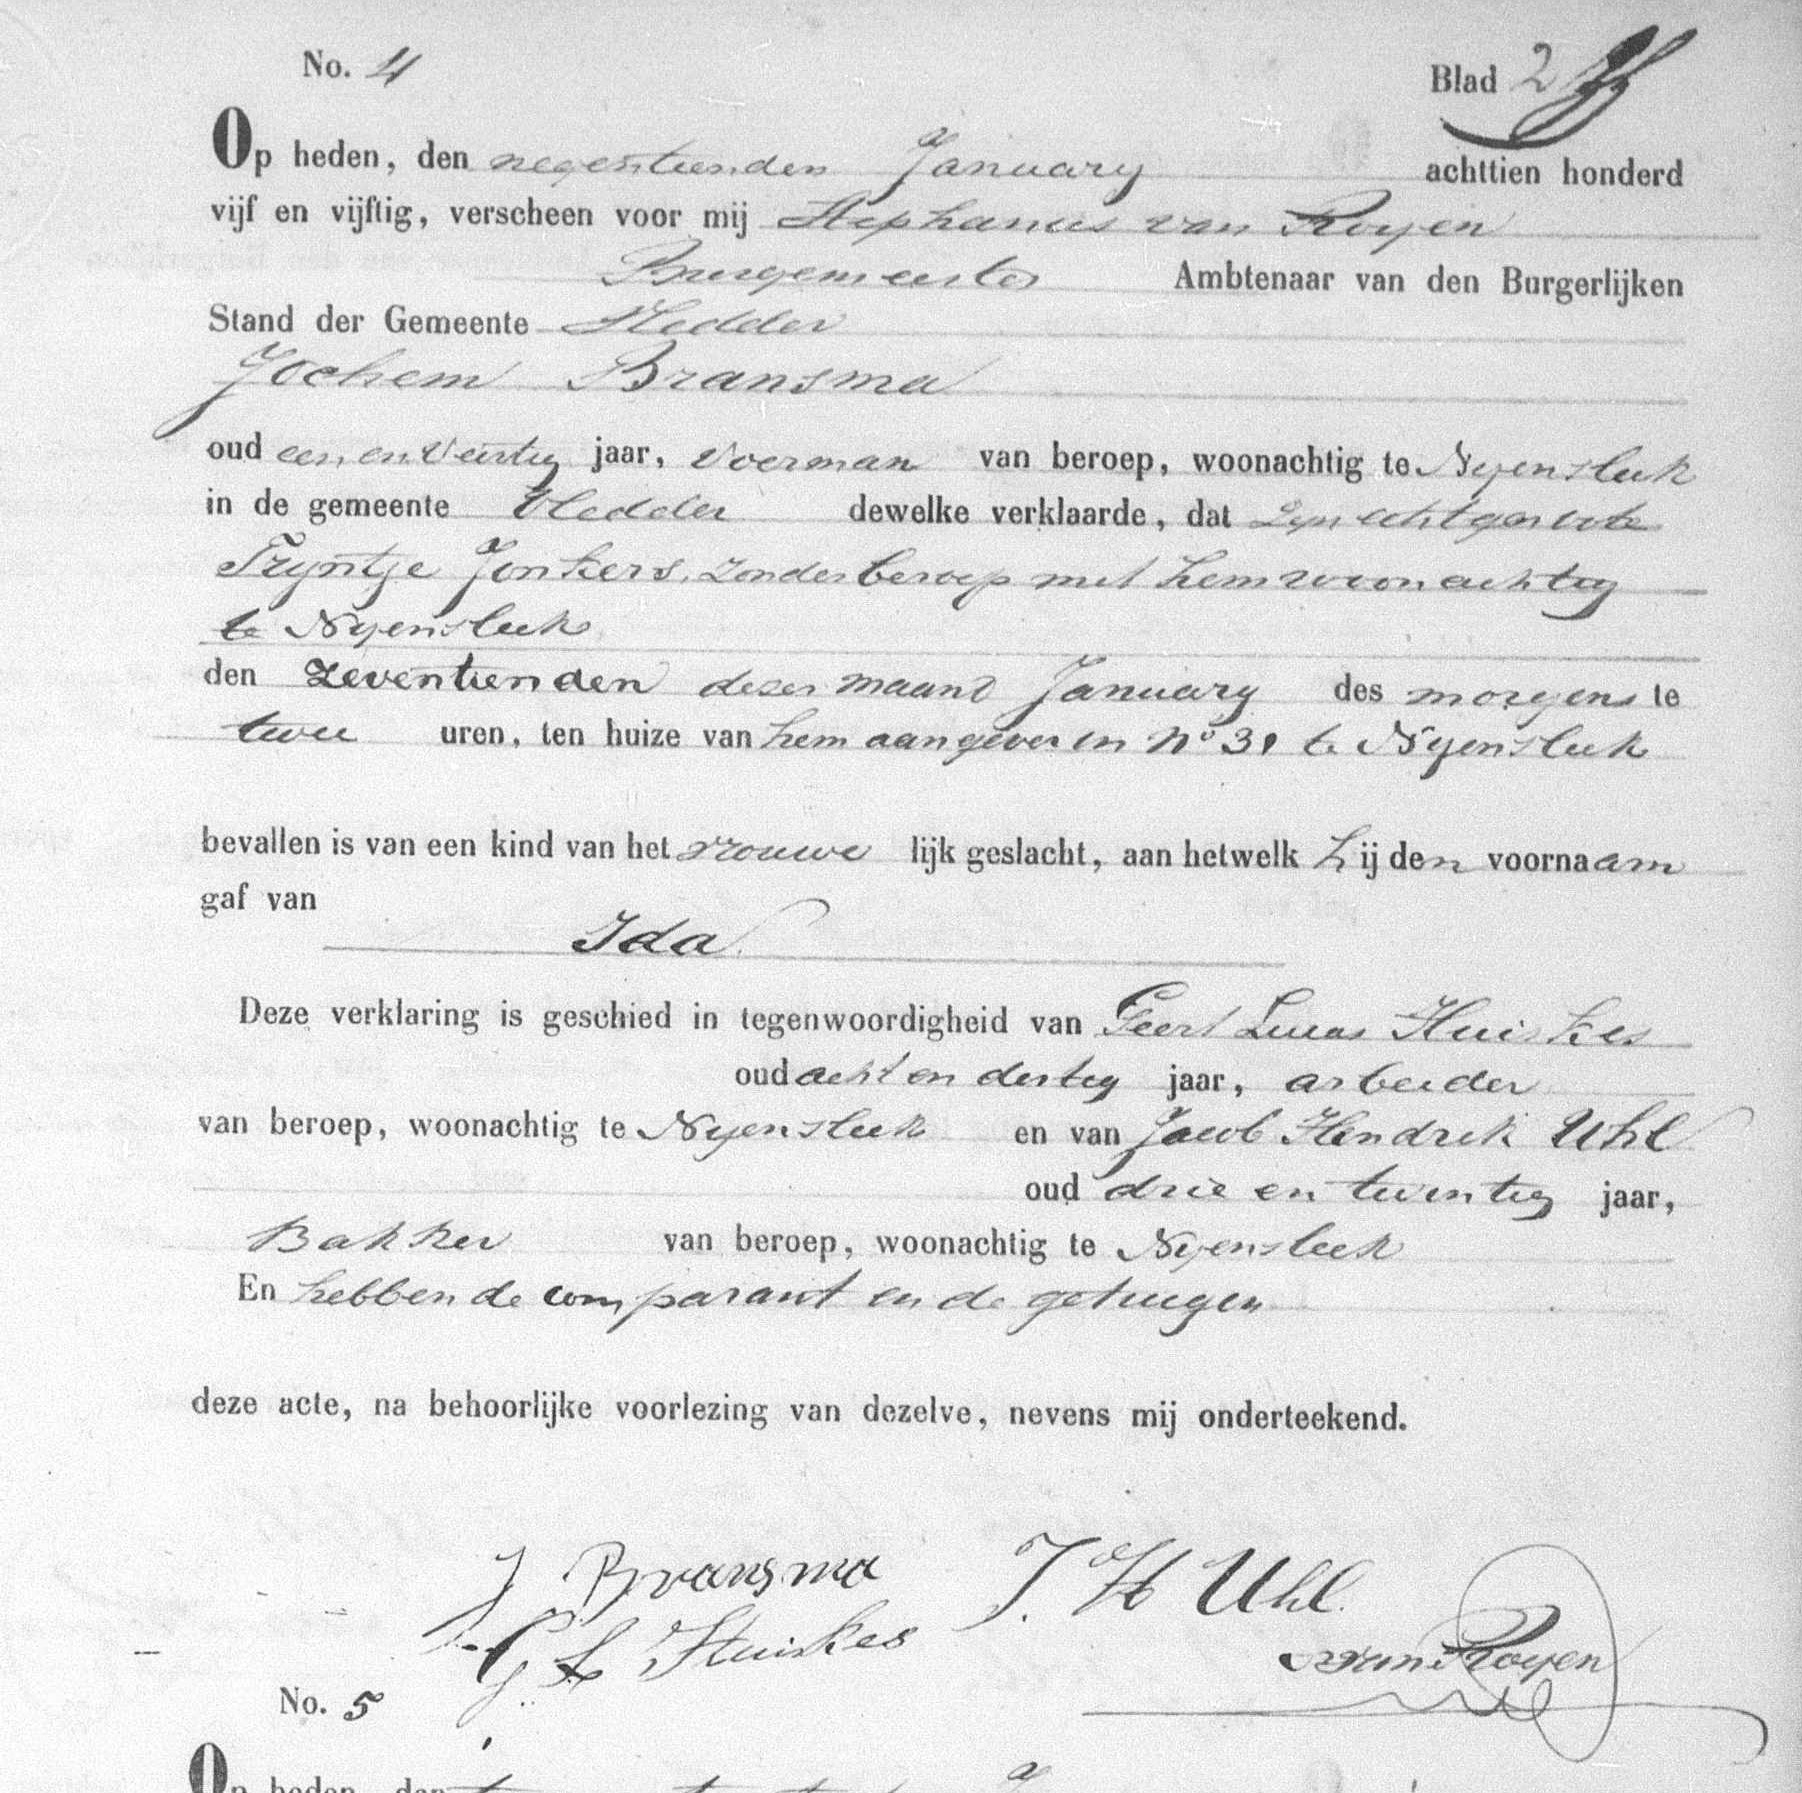 No. 4
Blad 2
Op heden, den negentienden January achttien honderd
vijf en vijftig, verscheen voor mij Stephanus van Royen
Burgemeester Ambtenaar van den Burgerlijken
Stand der Gemeente Vledder
Jochem Bransma
oud een en veertig jaar, voerman van beroep, woonachtig te Nyensleek
in de gemeente Vledder dewelke verklaarde, dat zyn echtgenoote
Tryntje Jonkers, zonder beroep met hem woonachtig
te Nyensleek
den zeventienden dezer maand January des morgens te
twee uren, ten huize van hem aangever in No 31 te Nyensleek
bevallen is van een kind van het vrouwe lijk geslacht, aan hetwelk hij den voornaam
gaf van
Ida.
Deze verklaring is geschied in tegenwoordigheid van Geert Lucas Huiskes
oud acht en dertig jaar, arbeider
van beroep, woonachtig te Nyensleek en van Jacob Hendrik Uhl
oud drie en twintig jaar,
Bakker van beroep, woonachtig te Nyensleek
En hebben de comparant en de getuigen
deze acte, na behoorlijke voorlezing van dezelve, nevens mij onderteekend.
J Bransma J. H Uhl.
G L Huiskes
van Royen
No. 5
Op heden, den